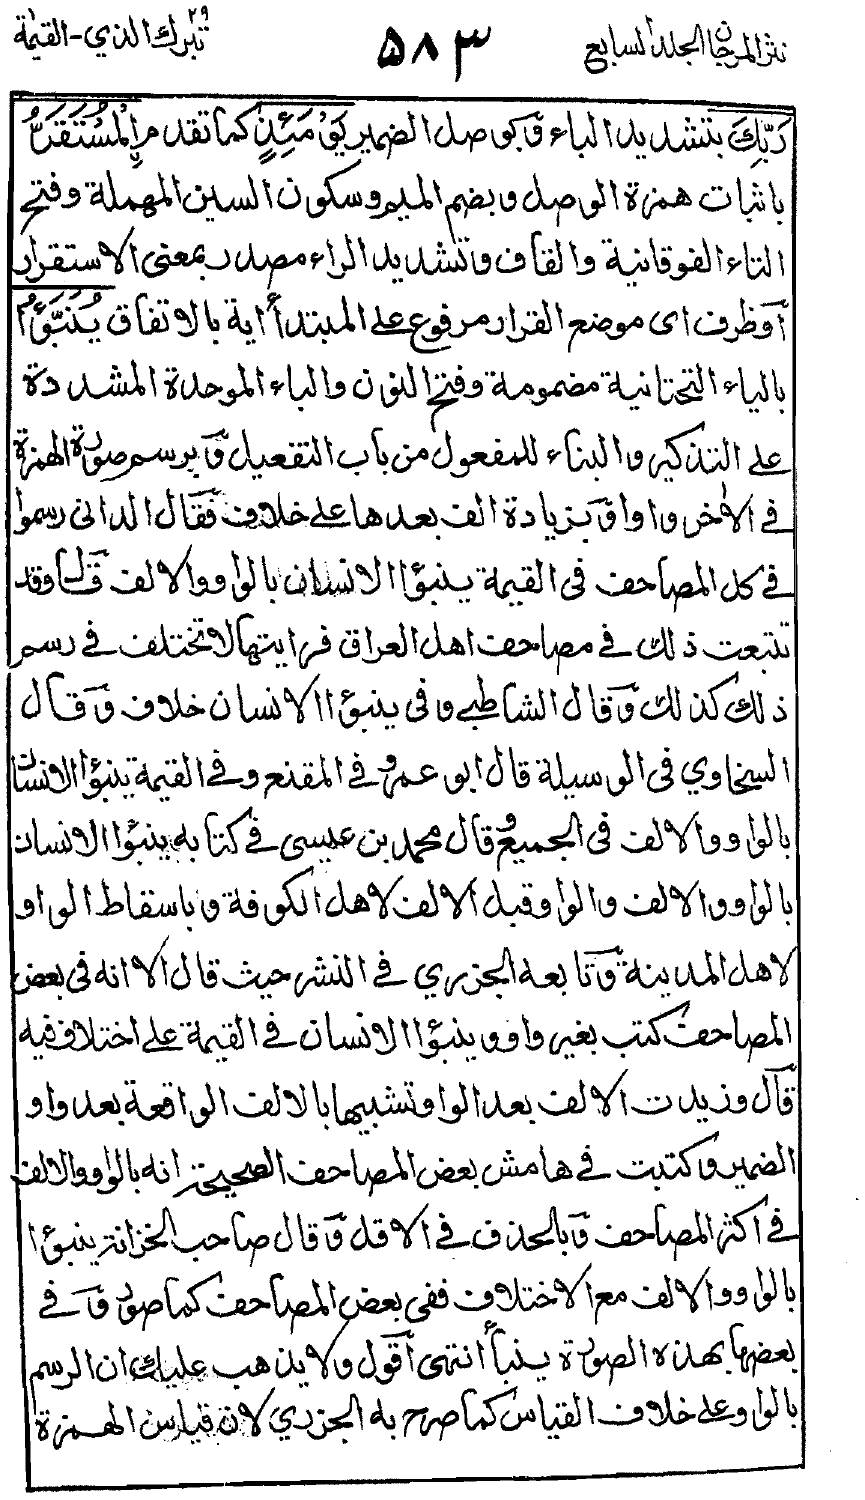 نثر المرجان الجلد السابع ۵۸۳ تبرك الذي ٢٩ - القيمة
رَبِّكَ بتشديد الباء وَبوصل الضمير يَوْمَئِذٍ كما تقدم مرارا الْمُسْتَقَرُّ
باثبات همزة الوصل وبضم الميم وسكون السين المهملة وفتح
التاء الفوقانية والقاف وتشديد الراء مصدر بمعنى الاستقرار
أوظرف اى موضع القرار مرفوع على المبتدأ اية بالاتفاق يُنَبَّؤُا
بالياء التحتانية مضمومة وفتح النون والباء الموحدة المشددة
على التذكير والبناء للمفعول من باب التفعيل وَبرسم صورة الهمزة
في الاٰخر واوا وَبزيادة الف بعدها على خلاف فقال الدانى رسموا
في كل المصاحف فى القيمة ينبؤا الانسان بالواو والالف قال وقد
تتبعت ذلك في مصاحف اهل العراق فرايتها لا تختلف في رسم
ذلك كذلك وَقال الشاطبي وفى ينبؤا الانسان خلاف وَقال
السخاوي فى الوسيلة قال ابو عمرو في المقنع وفي القيمة ينبؤا الانسان
بالواو والالف فى الجميع وَقال محمد بن عيسى في كتابه ينبؤا الانسان
بالواو والالف والواو قبل الالف لاهل الكوفة وباسقاط الواو
لاهل المدينة وَتابعه الجزري في النشر حيث قال الا انه فى بعض
المصاحف كتب بغير واو وينبؤا الانسان في القيمة على اختلاف فيه
قال وزيدت الالف بعد الواو تشبيها بالالف الواقعة بعد واو
الضمير وكتبت في هامش بعض المصاحف الصحيحة انه بالواو والالف
في اكثر المصاحف وَبالحذف في الاقل وَقال صاحب الخزانة ينبؤا
بالواو والالف مع الاختلاف ففي بعض المصاحف كما صور وَفي
بعضها بهذه الصورة ينبأ انتهى أقول ولا يذهب عليك ان الرسم
بالواو على خلاف القياس كما صرح به الجزري لان قياس الهمزة